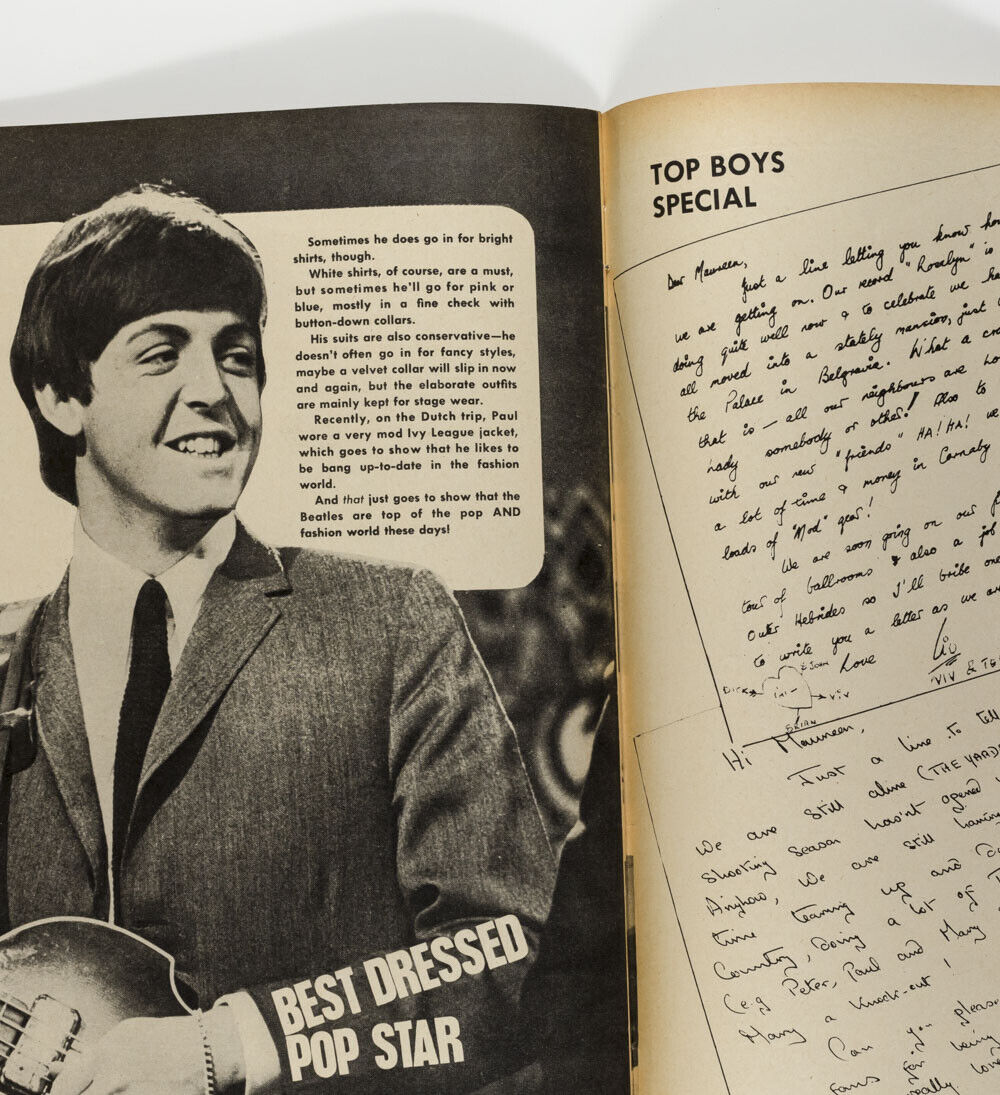 Sometimes he does go in for bright
shirts, though.
White shirts, of course, are a must,
but sometimes he'll go for pink or
blue, mostly in a fine check with
button-down collars.
His suits are also conservative—he
doesn't often go in for fancy styles,
maybe a velvet collar will slip in now
and again, but the elaborate outfits
are mainly kept for stage wear.
Recently, on the Dutch trip, Paul
wore a very mod Ivy League jacket,
which goes to show that he likes to
be bang up-to-date in the fashion
world.
And that just goes to show that the
Beatles are top of the pop AND
fashion world these days!
BEST DRESSED
POP STAR
TOP BOYS
SPECIAL
Dear Maureen,
Just a line letting you know
we are getting on. Our record "Rosalyn" is
doing quite well now & to celebrate we
all moved into a stately mansion, just
the Palace in Belgravia. What a
that is — all our neighbours are
Lady somebody or other! Also to
with our new "friends" HA! HA! we
a lot of time & money in Carnaby
loads of "Mod" gear!
We are soon going on our
tour of ballrooms & also a job
Outer Hebrides so I'll bribe one
to write you a letter as we
Love
Viv
VIV &
DICK
& JOHN
VIV
BRIAN
Hi Maureen,
Just a line to tell
We are still alive (THE
shooting season hasn't opened
Anyhow, we are still having
time tearing up and
Country, doing a lot of
(e.g Peter, Paul and Mary
Mary a knock-out!
Can you please
fans for being
really